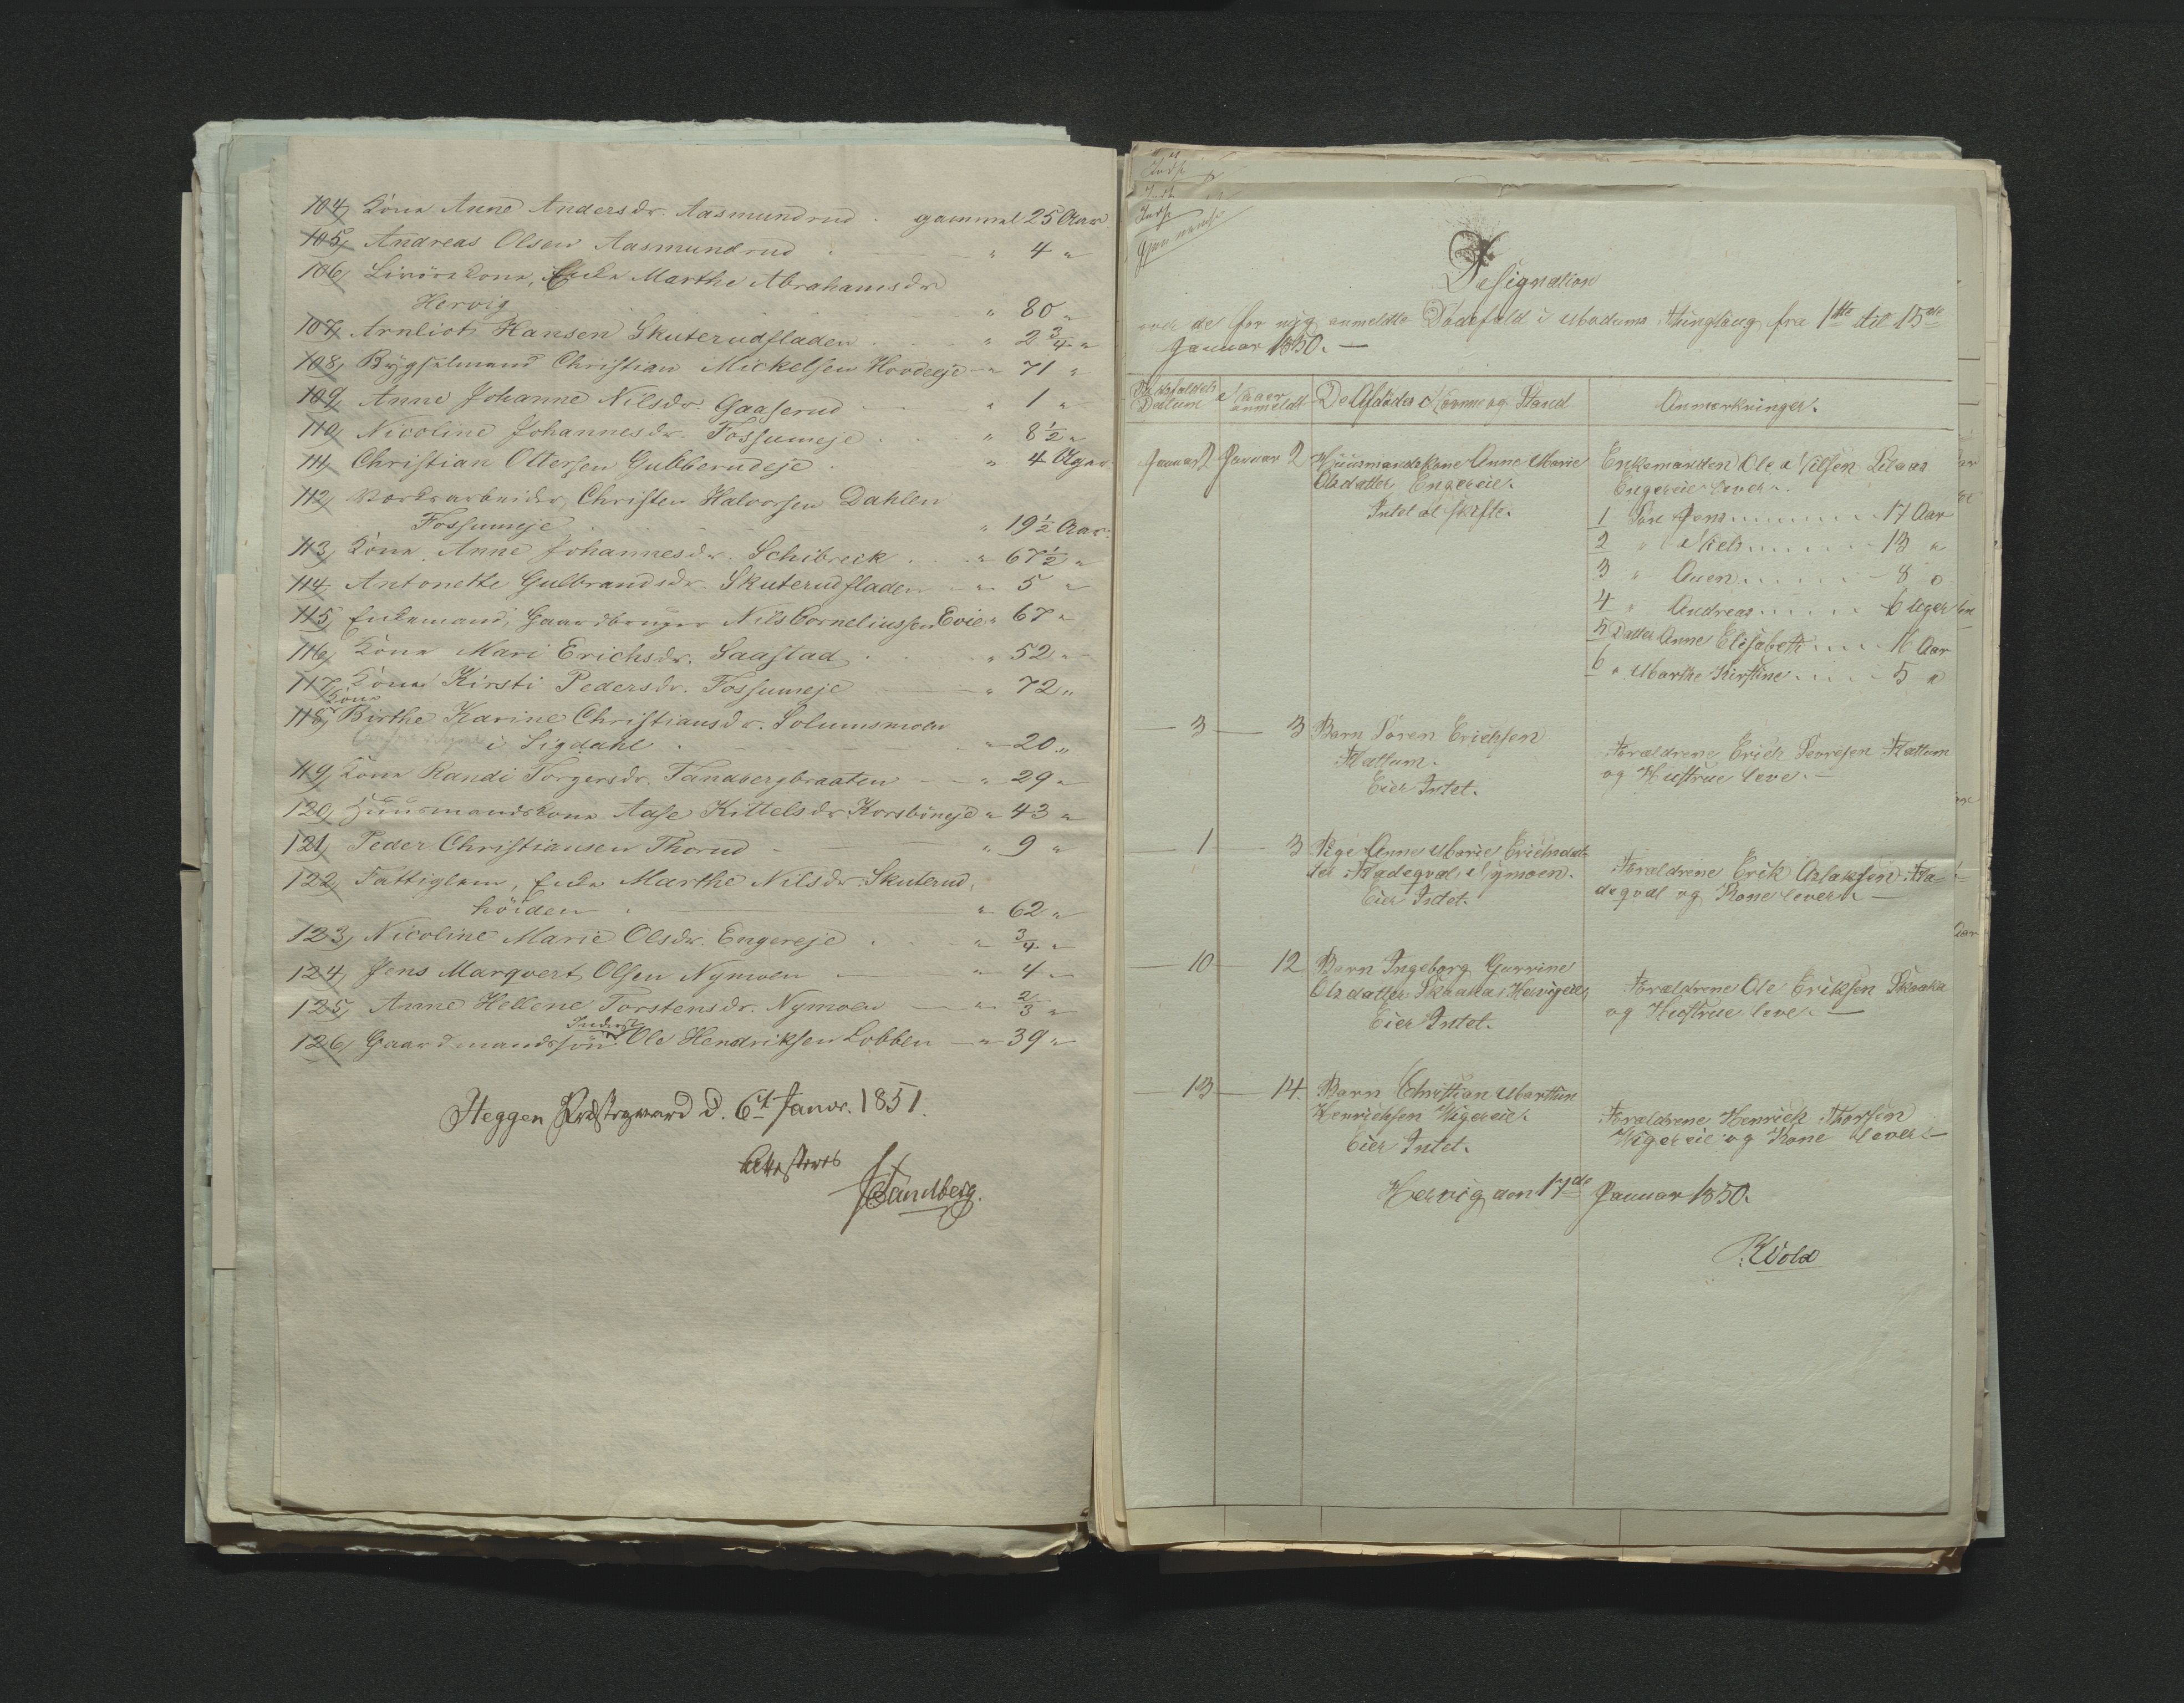 104, Kone Anne Andersdr. Aasmundrud . gammel 25 Aar
105, Andreas Olsen Aasmundrud . " 4 "
106, Livörekone, Enke Marthe Abrahamsdr
Hervig " 80 "
107, Arnliot Hansen Skuterudfladen . . " 2 3/4 "
108, Bygselmand Christian Mickelsen Hovdeeje " 71 "
109, Anne Johanne Nilsdr. Gaaserud " 1 "
110, Nicoline Johannesdr. Fossumeje . " 8 1/2 "
111, Christian Ottersen Gubberudeje . " 4 Uger
112, Værksarbeider, Christen Halvorsen Dahlen
Fossumeje " 19 1/2 Aar.
113, Kone Anne Johannesdr. Schibreck . . " 67 1/2 "
114, Antonette Gulbrandsdr. Skuterudfladen " 5 "
115, Enkemand, Gaardbruger Nils Corneliussen Evie " 67 "
116, Kone Mari Erichsdr. Saastad . " 52 "
117, Kone Kirsti Pedersdr. Fossumeje " 72 "
Kone
118, Birthe Karine Christiansdr. Solumsmoen
i Sigdahl . " 20 "
119, Kone Randi Torgersdr. Tandbergbraaten " 29 "
120, Huusmandskone Aase Kittelsdr. Korsböneje " 43 "
121, Peder Christiansen Thorud " 9 "
122, Fattiglem, Enke Marthe Nilsdr. Skuterud,
höiden . " 62 "
123, Nicoline Marie Olsdr. Engereje . " 3/4 "
124, Jens Marqvert Olsen Nymoen " 4 "
125, Anne Hellene Torstensdr. Nymoen " 2/3 "
Inderst
126, Gaardmandssön Ole Hendriksen Lobben " 39 "
Heggen Præstegaard d. 6t Janvr. 1851.
Attesteres
Sandberg.
Designation
over de for mig anmeldte Dödsfald i Modums Thinglaug fra 1ste til 15de
Januar 1850.
Dödsfaldets Datum
Naar anmeldt
De Afdödes Navne og Stand
Anmærkninger.
Januar 2 Januar 2 Huusmandskone Anne Marie
Olsdatter Engereie.
Intet at skifte.
Enkemanden Ole Nilsen
Engereie lever.
1 Sön Jens 17 Aar
2 " Niels 13 "
3 " Auen 8 "
4 " Andreas 6 Uger
5 Datter Anne Elisabeth 16 Aar
6 " Marthe Kirstine 5 "
3 3 Barn Soren Erichsen
Flattum.
Eier Intet.
Forældrene Erich Soresen Flattum
og Hustrue leve.
1 3 Pige Anne Marie Erichsdat-
ter Fladeqval, Nymoen.
Eier Intet.
Forældrene Erik Aslaksen Fla-
deqval og Kone lever.
10 12 Barn Ingeborg Gurrine
Olsdatter Skaaka, Hervigeie,
Eier Intet.
Forældrene Ole Eriksen Skaaka
og Hustrue leve.
13 14. Barn Christian Marthin
Henrichsen Wigereie.
Eier Intet.
Forældrene Henrich Thorsen
Wigereie og Kone lever.
Hervig den 17de Januar 1850.
Wold